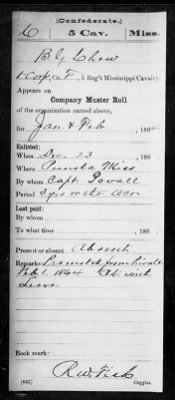 (Confederate.)
C 5 Cav. Miss.
B G Chew
1 Corp, Co. F, 5 Reg't Mississippi Cavalry.
Appears on
Company Muster Roll
of the organization named above,
for Jan & Feb, 186
Enlisted:
When Dec. 23, 186
Where Panola Miss
By whom Capt. Powell
Period 3 yrs or the war
Last paid:
By whom
To what time, 186
Present or absent Absent
Remarks: Promoted from private
Feb 1. 1864 Ab. with
Leave
Book mark:
R. W. Fick
(642) Copyist.